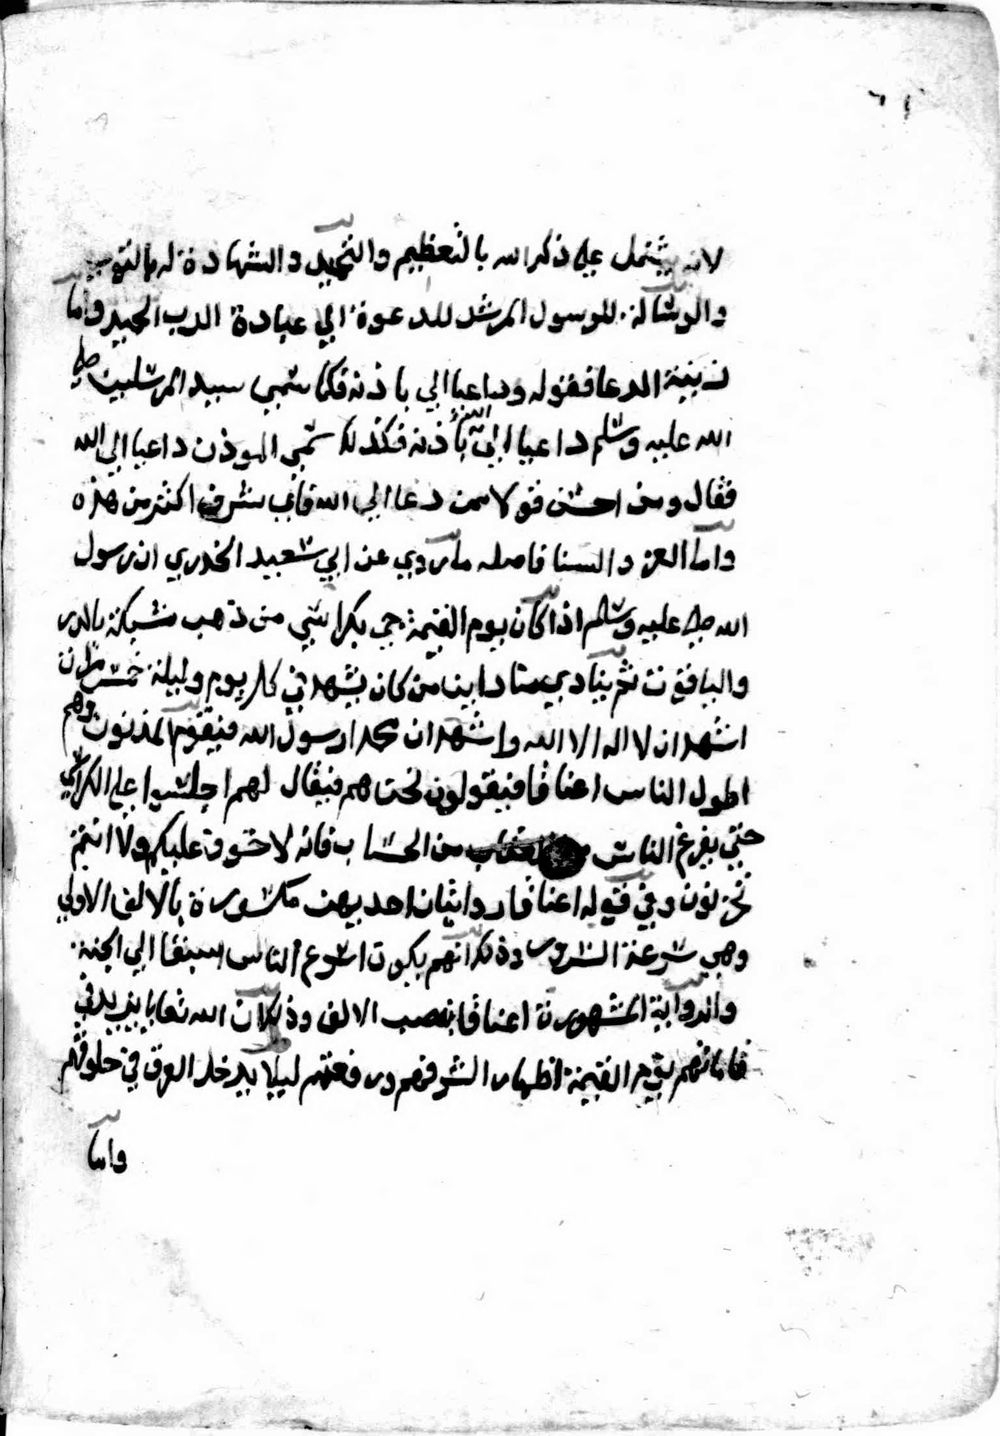 لانه يشتمل علي ذكر الله بالتعظيم والتمجيد والشهادة له بالتوحيد
والرسالة للرسول المرشد للدعوة الي عبادة الرب المجيد واما
نسبة الدعا فقوله وداعيا الي باذنه فكما سمي سيد المرسلين صلي
الله عليه وسلم داعيا الي الله باذنه فكذلك سمي الموذن داعيا الي الله
فقال ومن احسن قولا ممن دعا الي الله فاي شرف اكثر من هذه
واما العز والسنا فاصله ما روي عن ابي سعيد الخدري ان رسول
الله صلي عليه وسلم اذا كان يوم القيمة جي بكراسي من ذهب مشبكة بالدر
والياقوت ثم ينادي مناد اين من كان يشهد في كل يوم وليلة خمس مرات
اشهد ان لا اله الا الله واشهد ان محمدا رسول الله فيقوم الموذنون وهم
اطول الناس اعناقا فيقولون نحن هم فيقال لهم اجلسوا علي الكراسي
حتي يفرغ الناس من الحساب فانه لا خوف عليكم ولا انتم
تحزنون وفي قوله اعناقا روايتان احديهن مكسورة بالالف الاولي
وهي سرعة السير وذلك انهم يكون اسرع الناس سبقا الي الجنة
والرواية المشهورة اعناقا بنصب الالف وذلك ان الله تعالي يزيد في
قاماتهم يوم القيمة اظهار الشرفهم ورفعتهم ليلا يدخل العرق في حلوقهم
واما